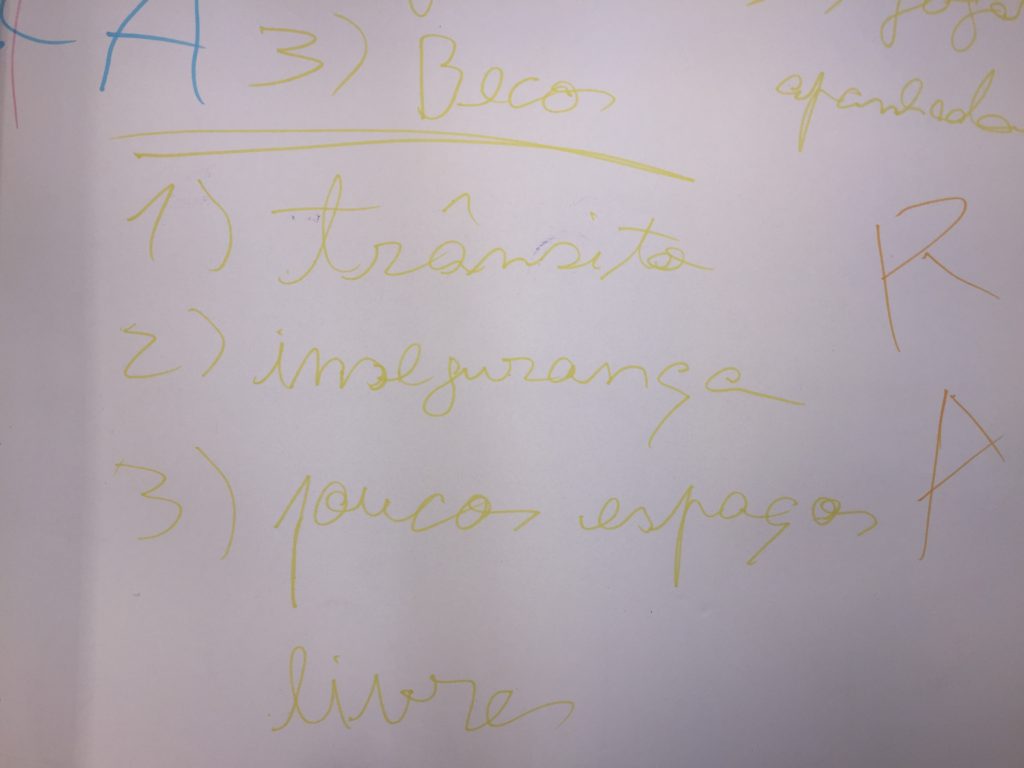 A
3) Becos
apanhado
1) trânsito
R
2) insegurança
3) poucos espaços
A
livres